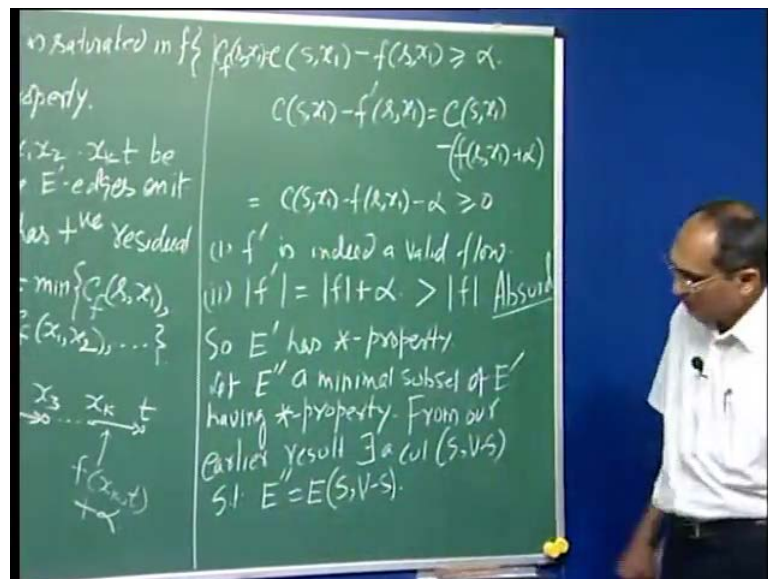 is saturated in f}
property.
x₁x₂ . xₖt be
E'-edges on it
has +ve residual
min{C_f(s,x₁),
(x₁,x₂), ....}
x₃ .... xₖ t
f(xₖ,t)
+α
C_f(s,x₁)=C(s,x₁)-f(s,x₁) ≥ α.
C(s,x₁)-f'(s,x₁)= C(s,x₁)
-(f(s,x₁)+α)
= C(s,x₁)-f(s,x₁)-α ≥ 0
(i) f' is indeed a valid flow.
(ii) |f'| = |f|+α. > |f| Absurd
So E' has *-property.
let E'' a minimal subset of E'
having *-property. From our
earlier result ∃ a cut (S,V-S)
s.t. E''=E(S,V-S).